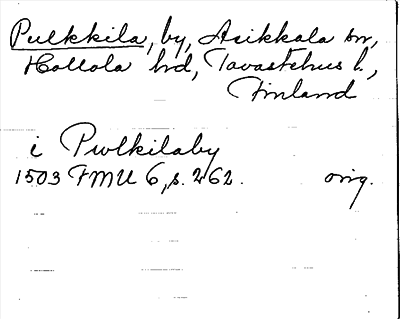 Pulkkila, by, Asikkala sn,
Hollola hd, Tavastehus l.,
Finland
i Pwlkilaby
1503 FMU 6, s. 262. orig.